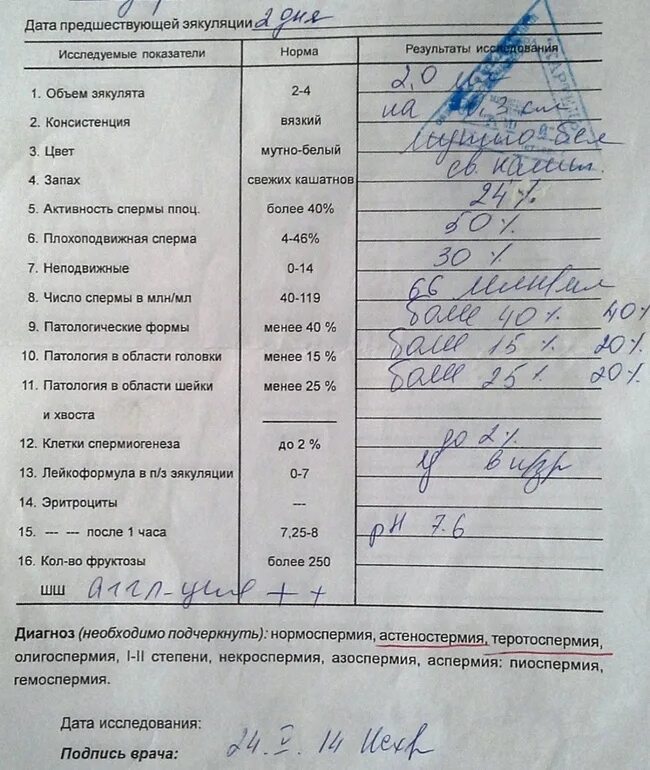 Дата предшествующей эякуляции 2 дня
Исследуемые показатели Норма Результаты исследования
1. Объем эякулята 2-4 2,0
2. Консистенция вязкий на 0,3 см
3. Цвет мутно-белый мутно-бел
4. Запах свежих кашатнов св. кашт.
5. Активность спермы ппоц. более 40% 24%
6. Плохоподвижная сперма 4-46% 50%
7. Неподвижные 0-14 30%
8. Число спермы в млн/мл 40-119 66 млн/мл
9. Патологические формы менее 40 % более 40% 40%
10. Патология в области головки менее 15 % более 15% 20%
11. Патология в области шейки менее 25 % более 25% 20%
и хвоста
12. Клетки спермиогенеза до 2 % до 2%
13. Лейкоформула в п/з эякуляции 0-7 в п/зр
14. Эритроциты ---
15. --- --- после 1 часа 7,25-8 pH 7.6
16. Кол-во фруктозы более 250
ШШ аггл-ция + +
Диагноз (необходимо подчеркнуть): нормоспермия, астеностермия, теротоспермия,
олигоспермия, I-II степени, некроспермия, азоспермия, аспермия: пиоспермия,
гемоспермия.
Дата исследования:
Подпись врача: 24. V. 14